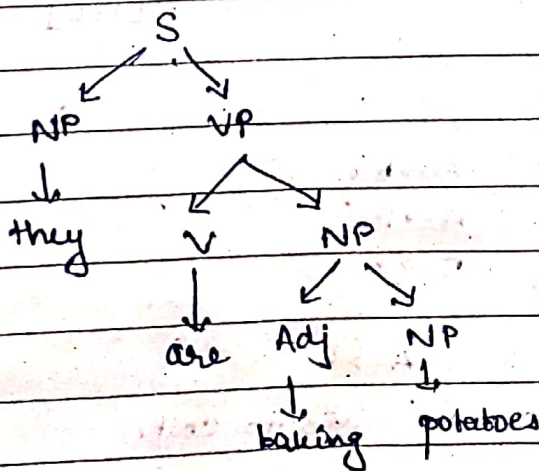 S
NP VP
they V NP
are Adj NP
baking potatoes